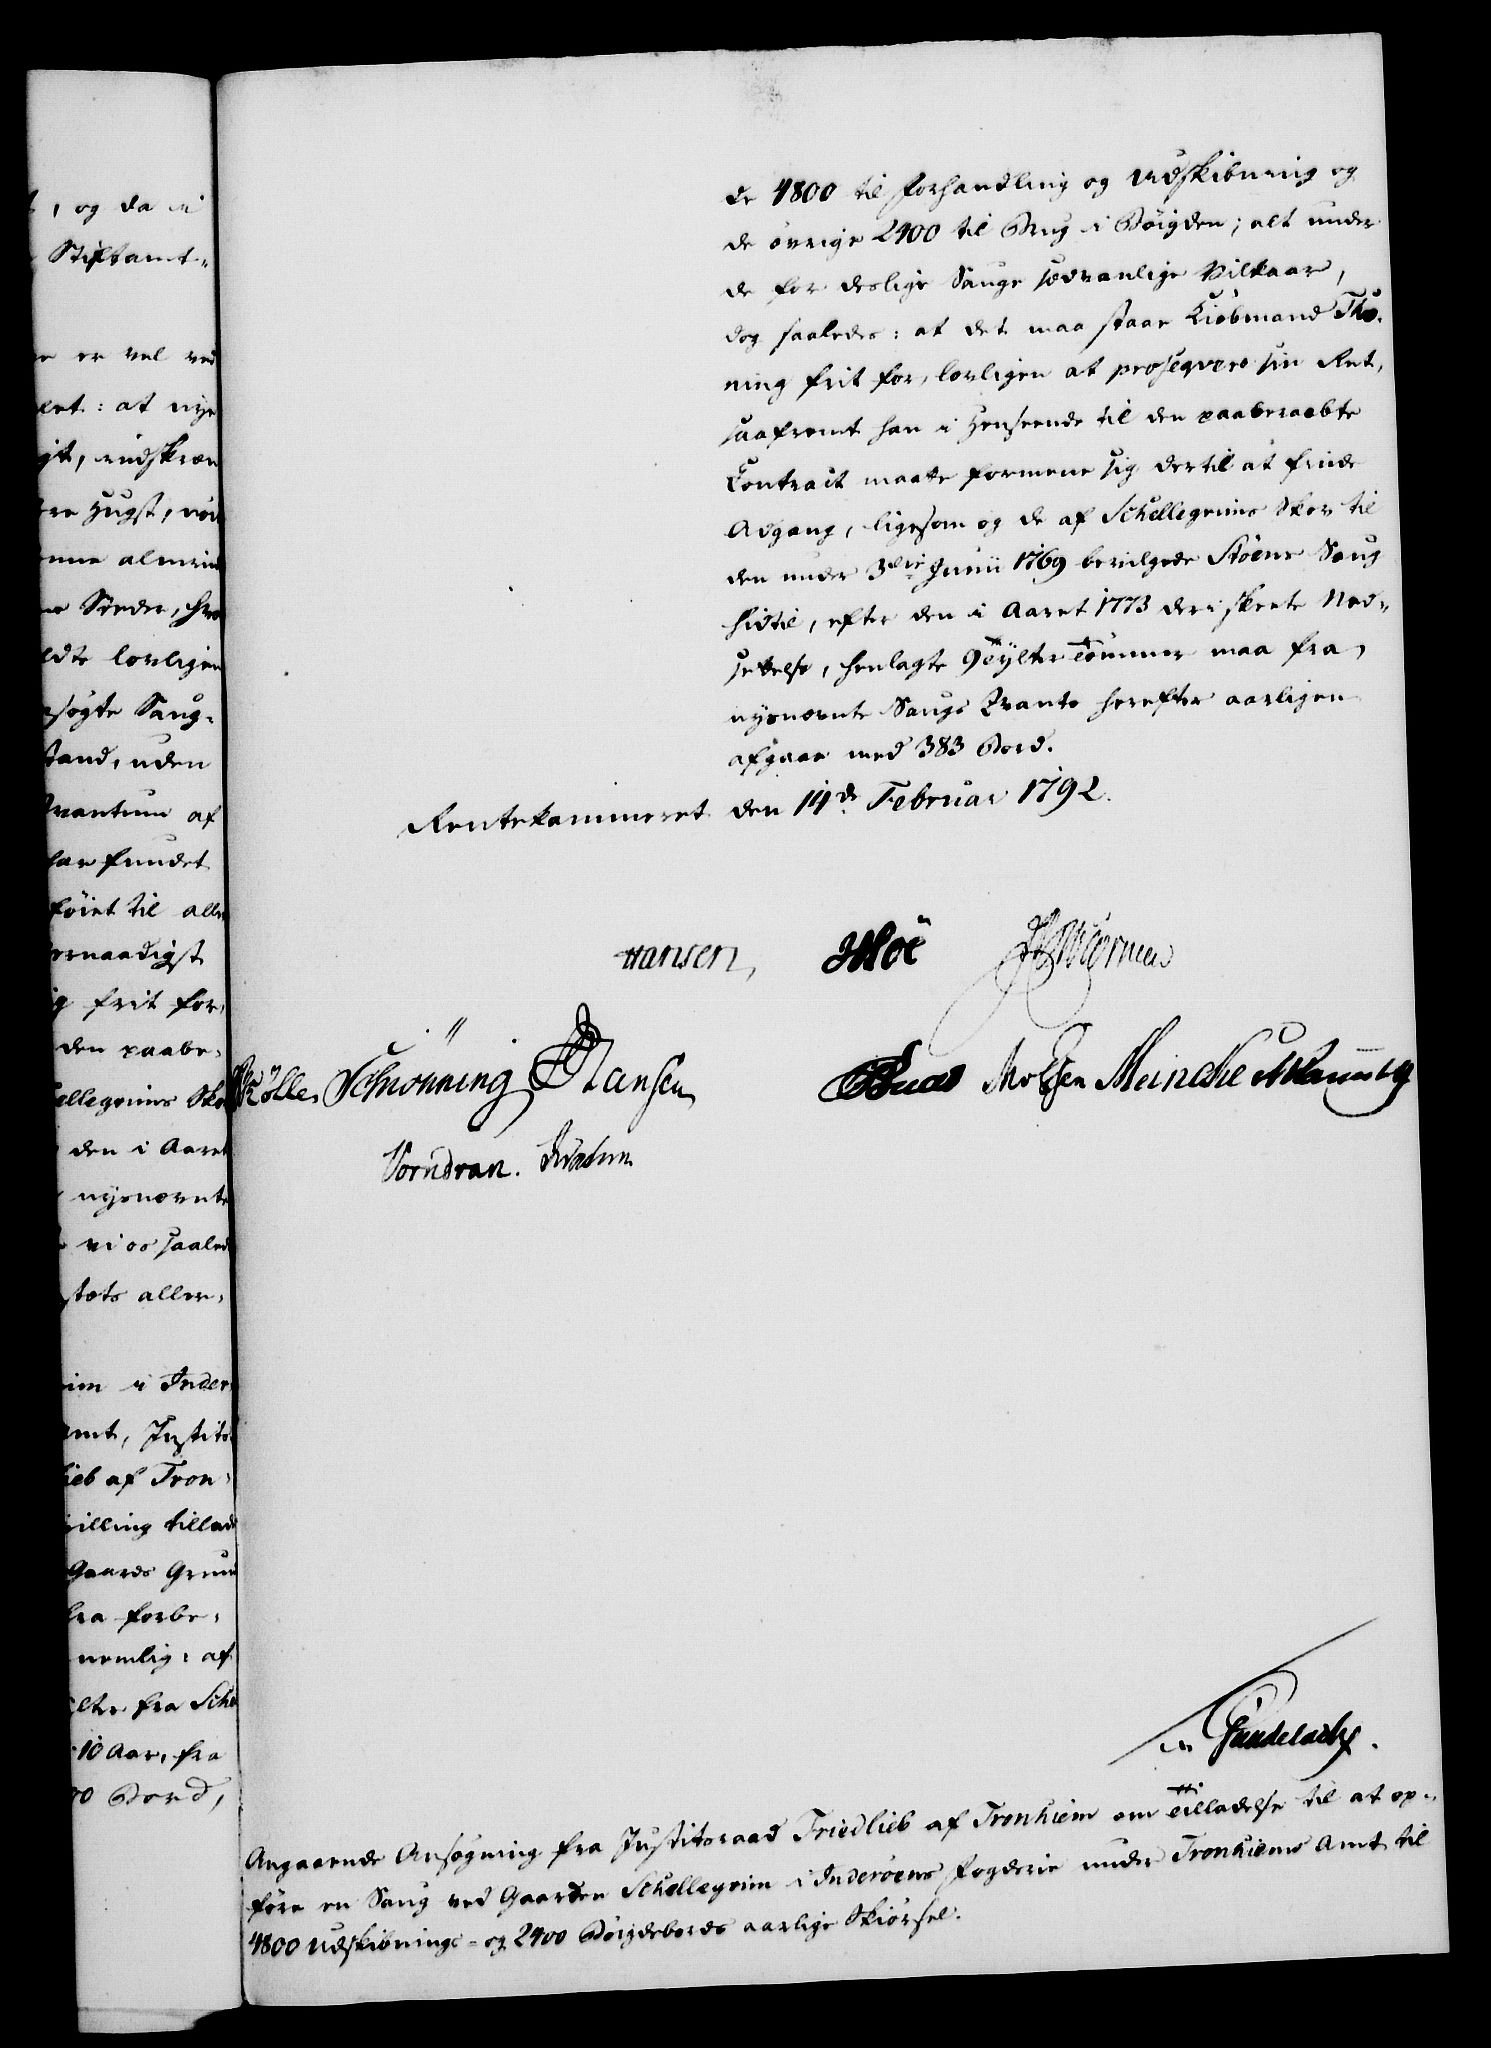 t, og da vi
Stiftamt-
er vel ved
let: at nye
gt, indskræn
ere Hugst,
enne almind
Steder, hvo
ldte lovligen
nsøgte Saug-
stand, uden
Qvantum af
har fundet
føiet til aller
ernaadigst
ig frit for,
den paabe-
Schellegrims Skov
den i Aaret
nysnævnte
vi os saaled
stæts aller-
im i Inder-
Amt, Justits-
lieb af Tron-
villing tillade
Gaards Grund
fra forbe-
nemlig: af
ylter fra Sche
10 Aar, fra
00 Bord,
de 4800 til Forhandling og Udskibning og
de øvrige 2400 til Brug i Bøigden; alt under
de for deslige Sauge sædvanlige Vilkaar,
dog saaledes: at det maa staae Kiøbmand Tho-
ning frit for, lovligen at proseqvere sin Ret,
saafremt han i Henseende til den paaberaabte
Contract maatte formene sig dertil at finde
Adgang, ligesom og de af Schellegrims Skov til
den under 3die Junii 1769 bevilgede Støens Saug
hidtil, efter den i Aaret 1773 deri skeete Ned-
settelse, henlagte 9 Tylter Tømmer maa fra
nysnævnte Saugs Qvanto herefter aarligen
afgaae med 383 Bord.
Rentekammeret den 14de Februar 1792.
Hansen, Hoë
Møller Schiønning Hansen Molsen Meincke
Vorndran.
Gundelach.
Angaaende Ansøgning fra Justitsraad Friedlieb af Tronhiem om Tilladelse til at op-
føre en Saug ved Gaarden Schellegrim i Inderøens Fogderie under Tronhiems Amt til
4800 Udskibnings- og 2400 Bøigdebords aarlige Skiørsel.